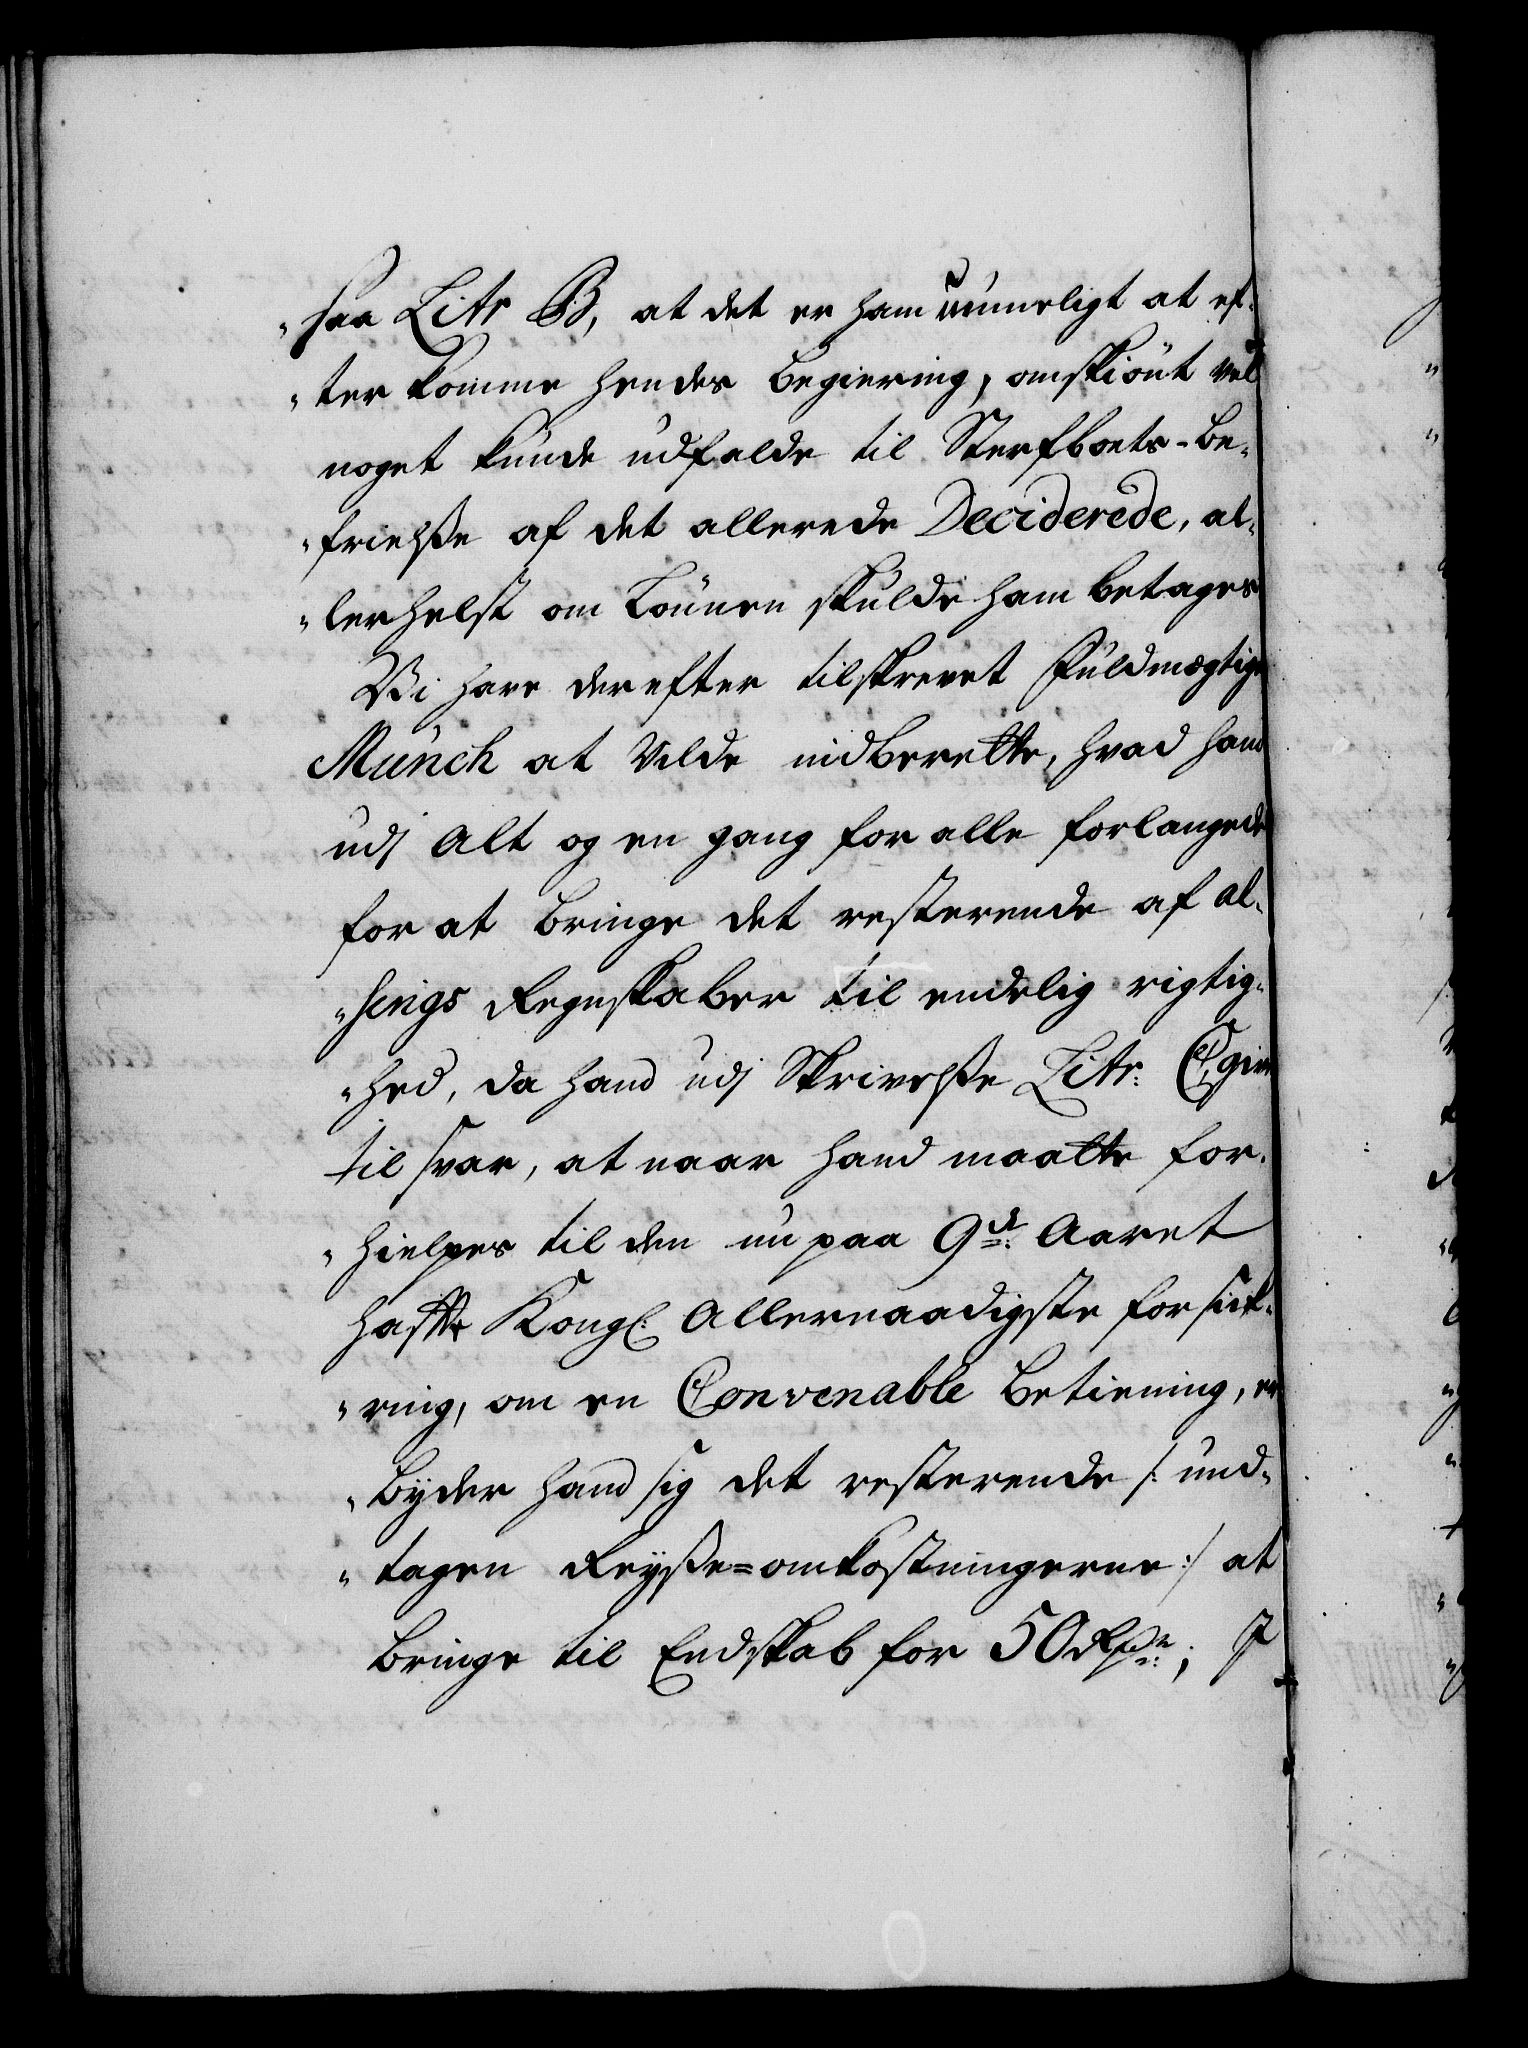 "saa Litr B, at det er ham uumueligt at ef„
"ter komme hendes begiering, omskiønt vel
noget kunde udfalde til Sterfboets-be„
"frielsse af det allerede Deciderede, al„
"lerhelst om Lønnen skulde ham betages
Vi have derefter tilskrevet Fuldmægtige
Münch at Vilde indberette, hvad hand
udj Alt og en gang for alle forlangede
for at bringe det resterende af al„
"herigs Regnskaber til endelig rigtig„
"hed, da hand udj Skrivelsse Litr: C, giver
til svar, at naar hand maatte for„
"hielpes til den nu paa 9de: Aaret
hafte Kongl: Allernaadigste forsik„
"ring, om en Convenable betiening, er
"byder hand sig det resterende /: und„
"tagen Reysse=omkostningerne :/ at
bringe til Endskab for 50 Rdr:; I